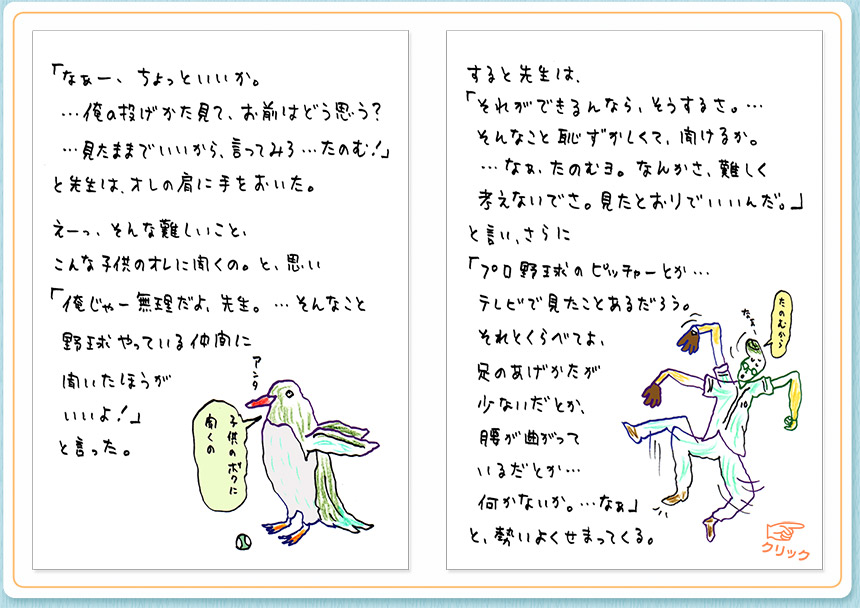 「なぁー、ちょっといいか。
…俺の投げかた見て、お前はどう思う？
…見たままでいいから、言ってみろ…たのむ！」
と先生は、オレの肩に手をおいた。
えーっ、そんな難しいこと、
こんな子供のオレに聞くの。と、思い
「俺じゃー無理だよ、先生。…そんなこと
野球やっている仲間に
聞いたほうが
いいよ！」
と言った。
アンタ
子供のボクに
聞くの
すると先生は、
「それができるんなら、そうするさ。…
そんなこと恥ずかしくて、聞けるか。
…なぁ、たのむヨ。なんかさ、難しく
考えないでさ。見たとおりでいいんだ。」
と言い、さらに
「プロ野球のピッチャーとか…
テレビで見たことあるだろう。
それとくらべてよ、
足のあげかたが
少ないだとか、
腰が曲がって
いるだとか…
何かないか。…なぁ」
と、勢いよくせまってくる。
なぁ、
たのむから
10
クリック